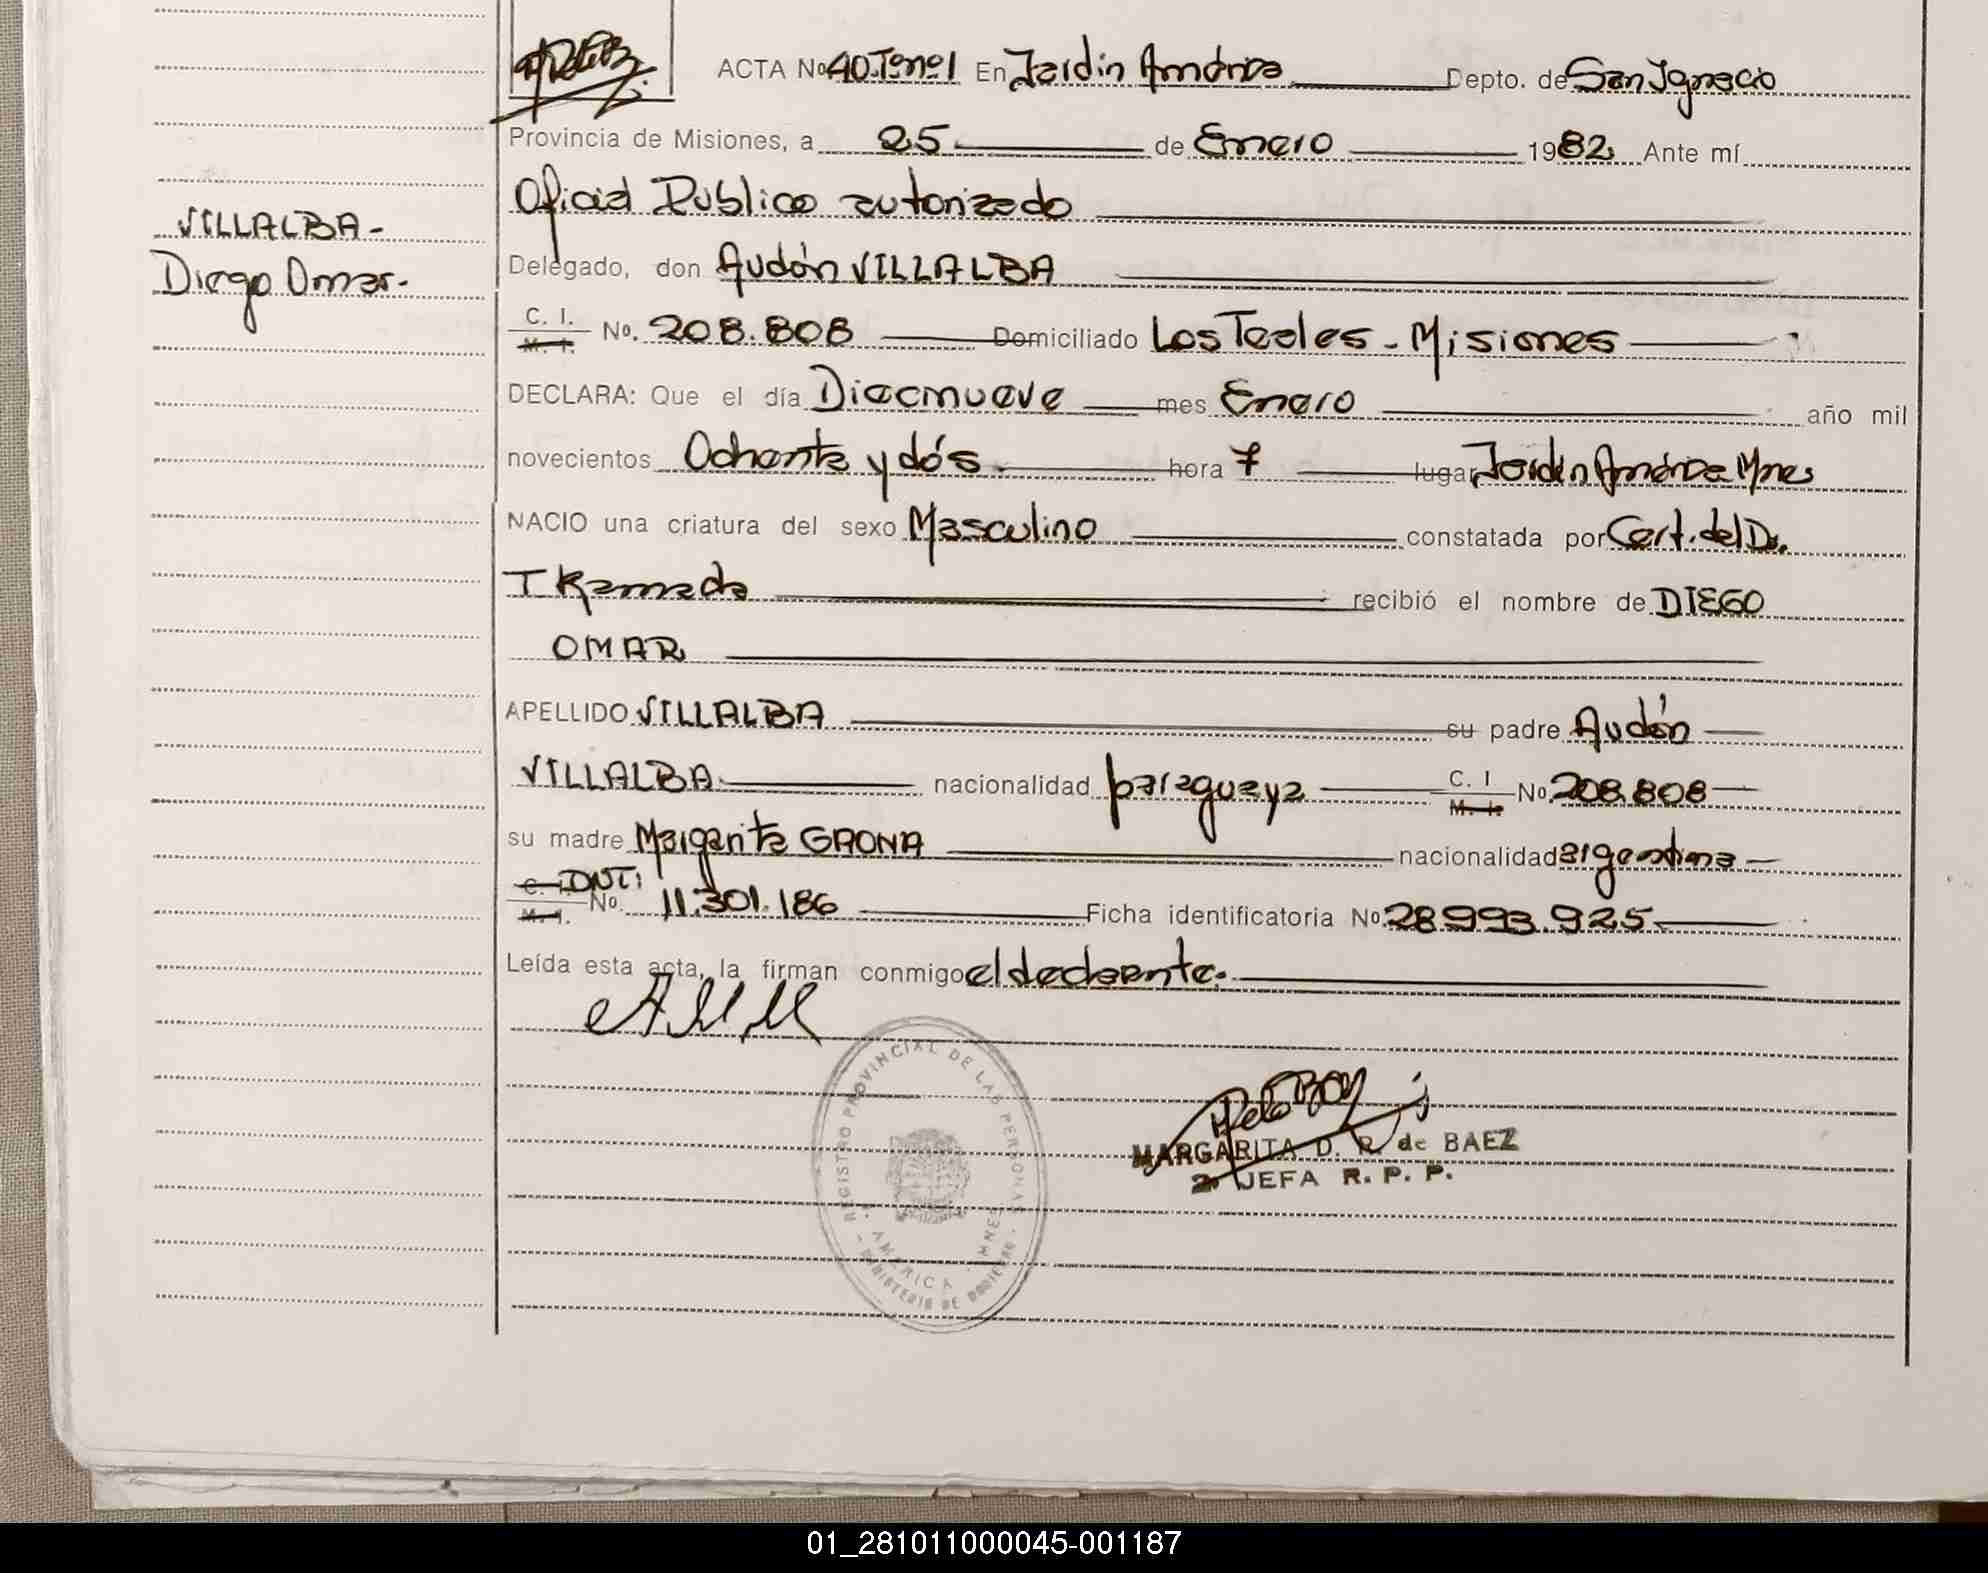 ACTA No 40.Tº nº1 En Jardín América Depto. de San Ignacio
Provincia de Misiones, a 25 de Enero 1982 Ante mí
Oficial Publico autorizado
VILLALBA-
Diego Omar.-
Delegado, don Audón VILLALBA
C. I. M. I. No. 208.808 Domiciliado Los Teales - Misiones
DECLARA: Que el día Diecinueve mes Enero año mil
novecientos Ochenta y dós. hora 7 lugar Jardín América Mnes
NACIO una criatura del sexo Masculino constatada por Cert. del Dr.
T Kamada recibió el nombre de DIEGO
OMAR
APELLIDO VILLALBA su padre Audón
VILLALBA nacionalidad paraguaya C. I M. I. No. 208.808
su madre Margarita GAONA nacionalidad argentina
C. I. DNI: M. I. No. 11.301.186 Ficha identificatoria No. 28.993.925
Leída esta acta, la firman conmigo el declarante.
REGISTRO PROVINCIAL DE LAS PERSONAS
AMERICA MNES
MINISTERIO DE GOBIERNO
MARGARITA D. R. de BAEZ
2º JEFA R. P. P.
01_281011000045-001187